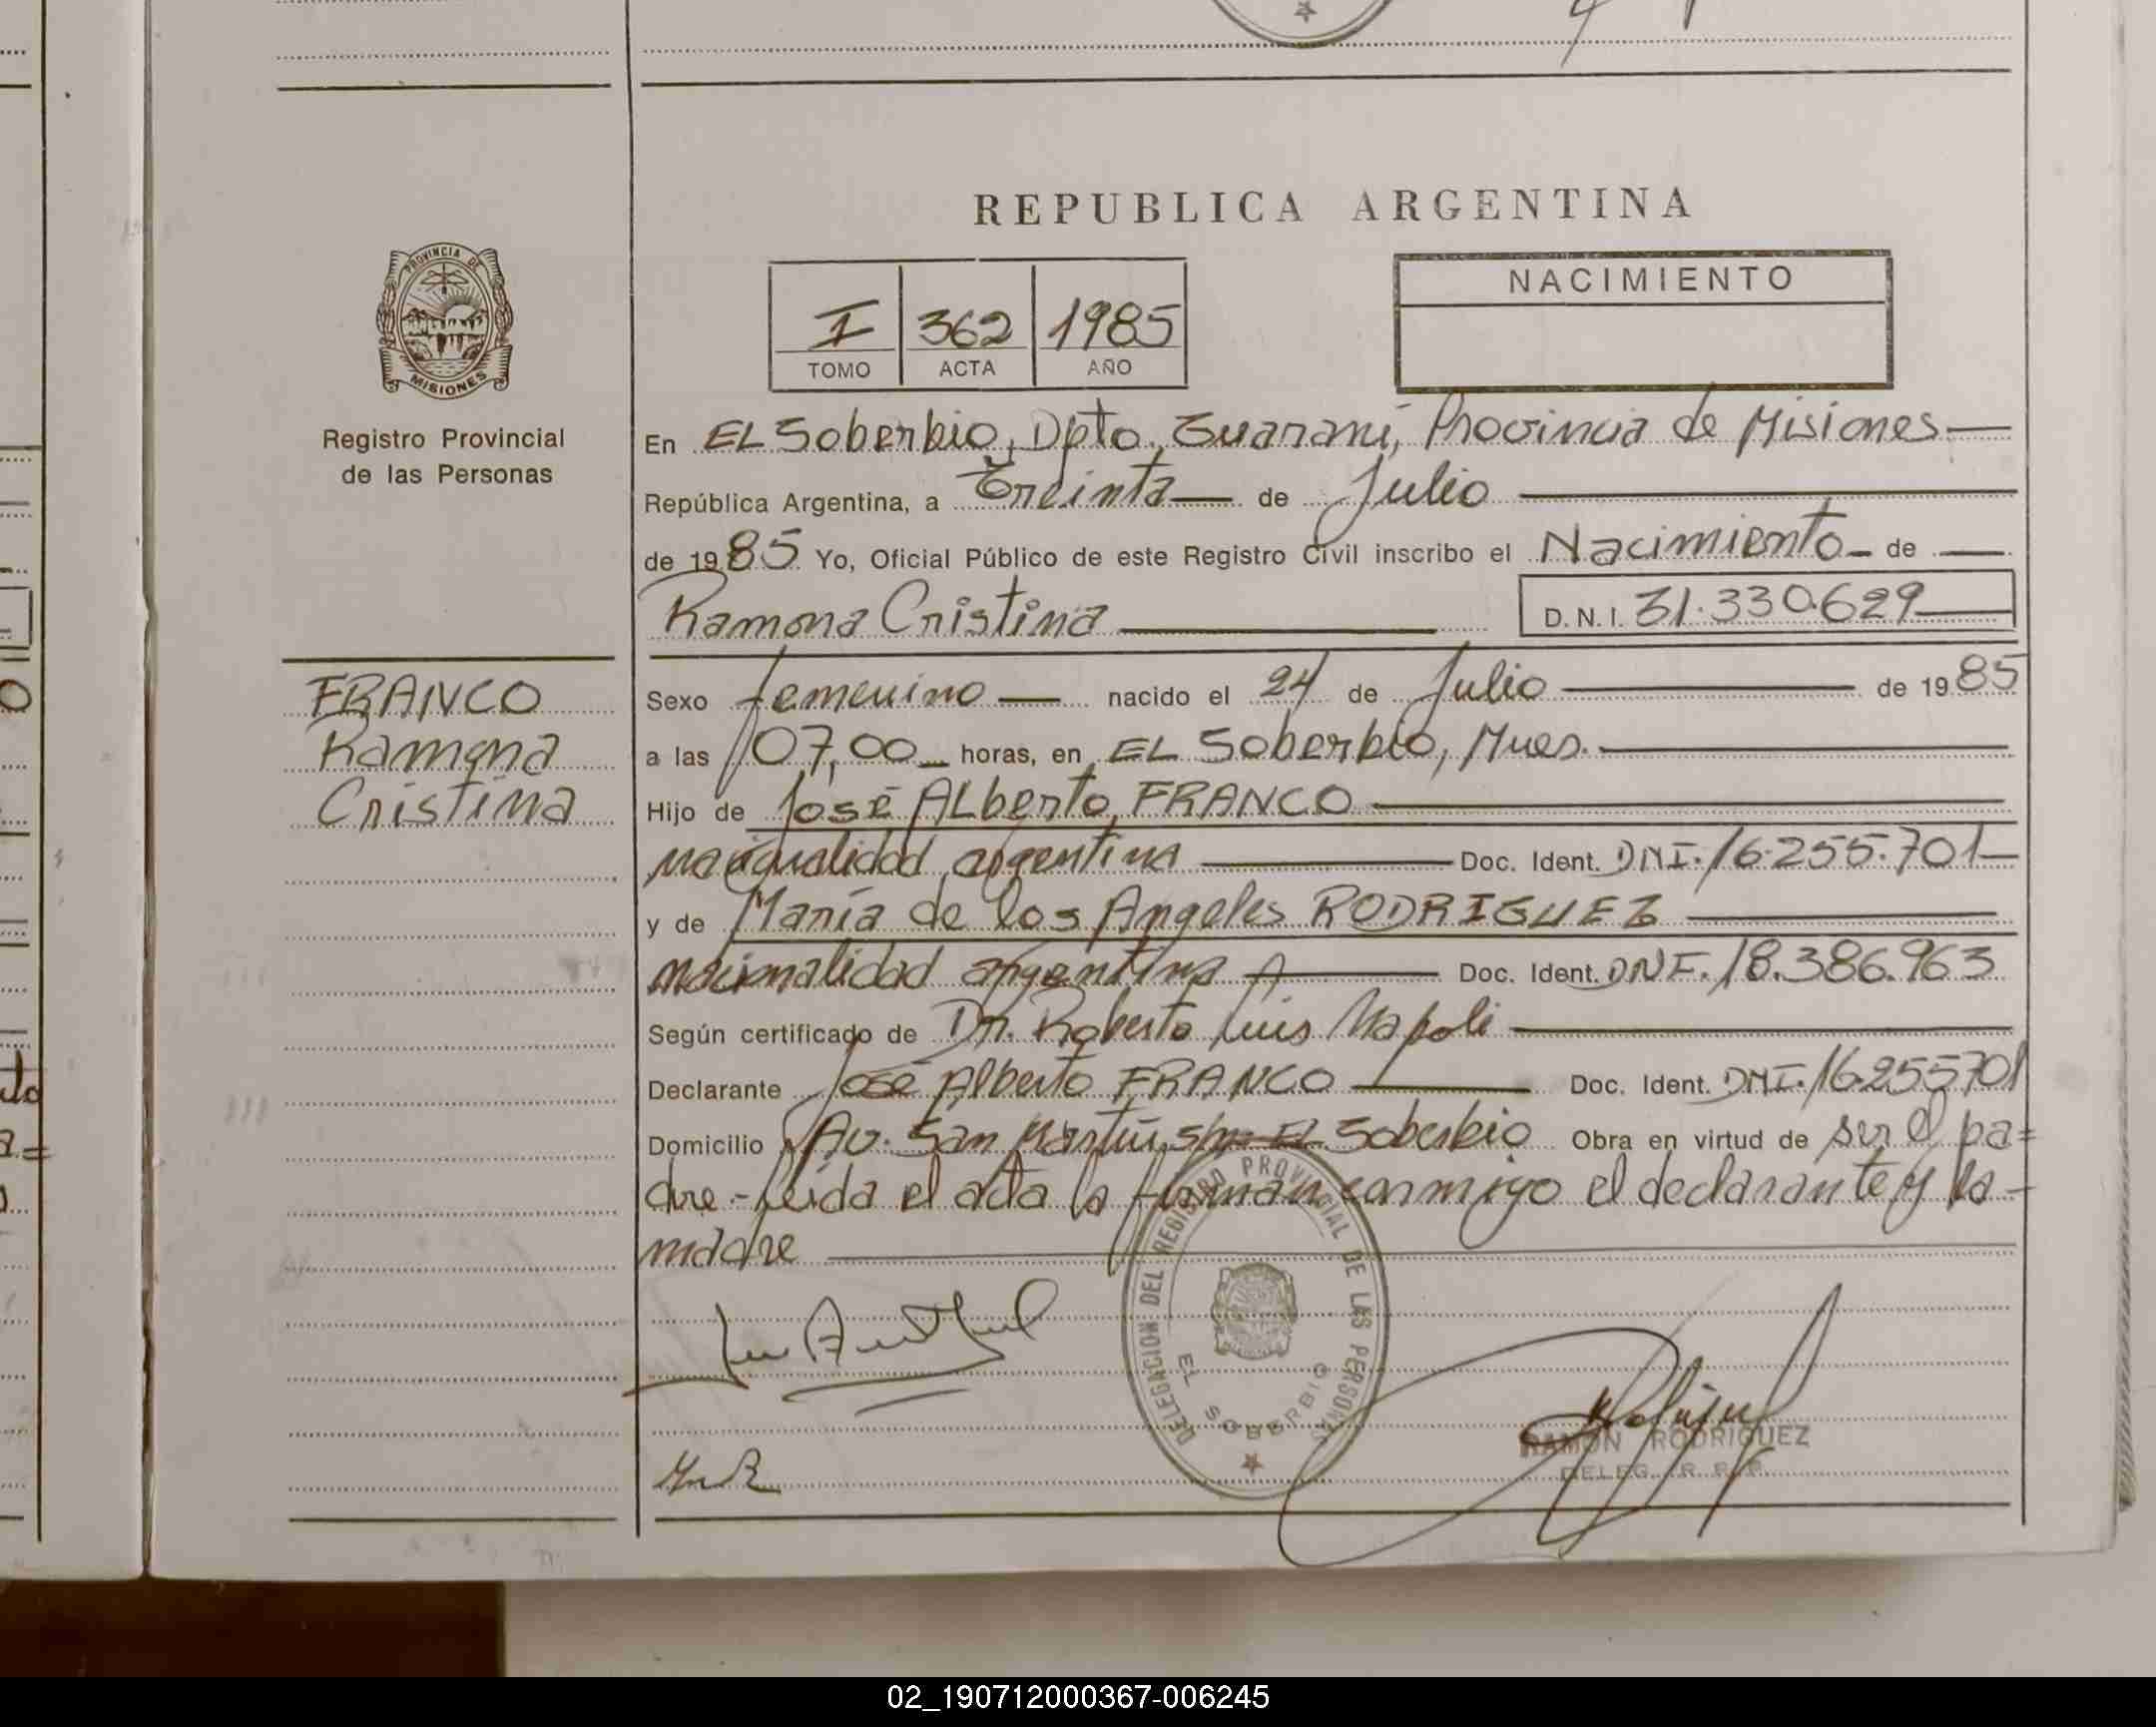 REPUBLICA ARGENTINA
PROVINCIA DE
MISIONES
Registro Provincial
de las Personas
NACIMIENTO
I 362 1985
TOMO ACTA AÑO
En EL Soberbio, Dpto, Guaraní, Provincia de Misiones
República Argentina, a Treinta de Julio
de 1985 Yo, Oficial Público de este Registro Civil inscribo el Nacimiento de
Ramona Cristina D.N.I. 31.330.629
FRANCO
Ramona
Cristina
Sexo femenino nacido el 24 de Julio de 1985
a las 07,00 horas, en EL Soberbio, Mnes.
Hijo de José ALberto FRANCO
nacionalidad argentina Doc. Ident. DNI. 16.255.701
y de María de los Angeles RODRIGUEZ
nacionalidad argentina Doc. Ident. DNI. 18.386.963
Según certificado de Dr. Roberto Luis Napoli
Declarante José Alberto FRANCO Doc. Ident. DNI. 16.255701
Domicilio Av. San Martín, s/n- EL Soberbio Obra en virtud de ser el pa=
dre.- Leída el acta la firman conmigo el declarante y la-
madre
DELEGACION DEL REGISTRO PROVINCIAL DE LAS PERSONAS
EL SOBERBIO
RAMON RODRIGUEZ
02_190712000367-006245